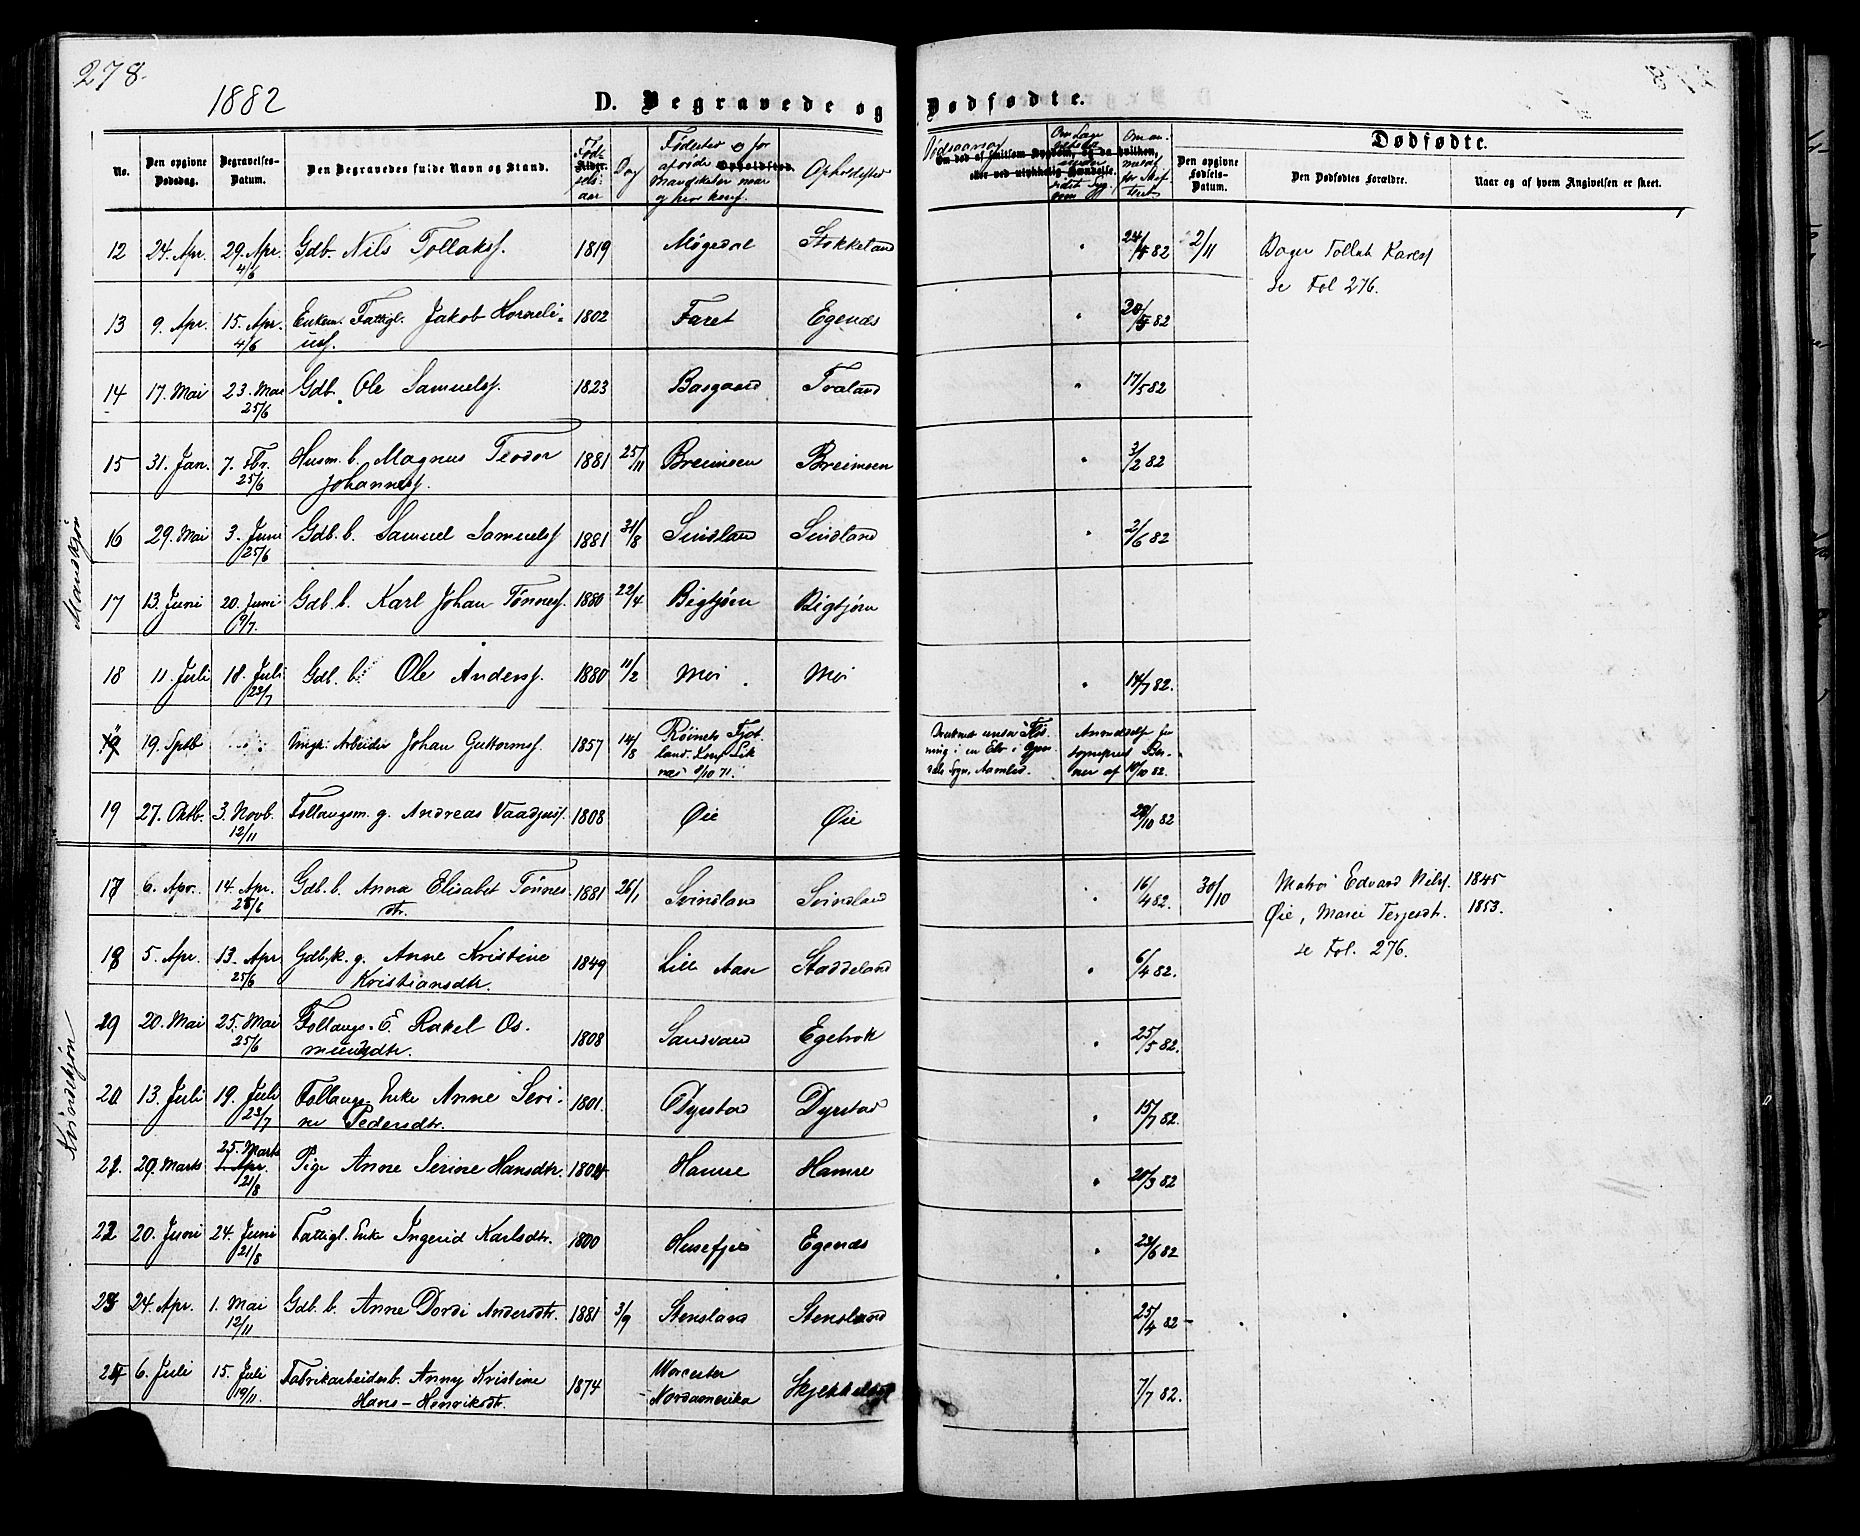 278.
1882
D. Begravede og
Dødfødte.
No.
Den opgivne Dødsdag.
Begravelses-Datum.
Den Begravedes fulde Navn og Stand.
Dag
Opholdsted
Dødfødte.
Den opgivne Fødsels-Datum.
Den Dødfødtes Forældre.
Naar og af hvem Angivelsen er skeet.
Mandkjøn
12 24. Apr. 29. Apr. 4/6 Gdb. Nils Tollaksf. 1819 Møgedal Stokkeland 2/11
Bager Tollak Karlsf
se Fol 276.
13 9. Apr. 15. Apr. 4/6 Enkem. Fattigl. Jakob Korneli-
usf. 1802 Faret Egenæs
14 17. Mai 23. Mai 25/6 Gdb. Ole Samuelsf. 1823 Basgaard Traland 17/5 82
15 31. Jan. 7. Fbr. 25/6 Husm. b. Magnus Teodor
Johannesf. 1881 25/11 Breimoen Breimoen 3/2 82
16 29. Mai 3. Juni 25/6 Gdb. b. Samuel Samuelsf 1881 31/8 Svindland Svindland 2/6 82
17 13. Juni 20. Juni 9/7. Gdb. b. Karl Johan Tønnesf. 1880 22/4 Bigtjørn Bigtjørn
18 11. Juli 18. Juli 23/7 Gdb. b. Ole Andersf. 1880 11/2 Moi Moi 14/7 82.
19 19. Sptb Ungk. Arbeider Johan Guttormsf. 1857 14/8 Røines Fjot-
land. Konf Lik
næs 8/10 71.
Druknet under Fløt-
ning i en Elv i
Sogn, Aamlid.
Anmeldelse fra
sogneprest
ner af 10/10 82.
19 27. Oktb. 3. Novb. 12/11 Follaugsm. g. Andreas Vaadjusf. 1808 Øie Øie 28/10 82
Kvindekjøn
17 6. Apr. 14. Apr. 25/6 Gdb. b. Anna Elisabet Tønnes-
dtr. 1881 26/1 Svindland Svindland 16/4 82. 30/10
Matros Edvard Nilsf. 1845
Øie, Marie Terjesdtr. 1853.
se Fol. 276.
18 5. Apr. 13. Apr 25/6 Gdb.k. g. Anne Kristine
Kristiansdtr. 1849 Lille Aase Staddeland 6/4 82.
19 20. Mai 25. Mai 25/6 Follaugs. E. Rakel Os-
mundsdtr. 1808 Sandvand Egebrok 25/5 82.
20 13. Juli 19. Juli 23/7 Follaugs Enke Anne Seri-
ne Pedersdtr. 1801. Dyrstad Dyrstad 15/7 82.
21. 20. Marts 25. Marts 21/8 Pige Anne Serine Hansdtr. 1804 Hamre Hamre 20/3 82
22 20. Juni 24. Juni 21/8 Fattigl. Enke Ingerid Karlsdtr. 1800 Husefjeld Egenæs 23/6 82
23 24. Apr. 1. Mai 12/11 Gdb. b. Anne Dordi Andersdtr. 1881 3/9 Stensland Stensland 25/4 82
24 6. Juli 15. Juli 19/11 Fabrikarbeiderb. Anny Kristine
Hans-Henriksdtr. 1874 Worcester
Nordamerika 7/7 82.